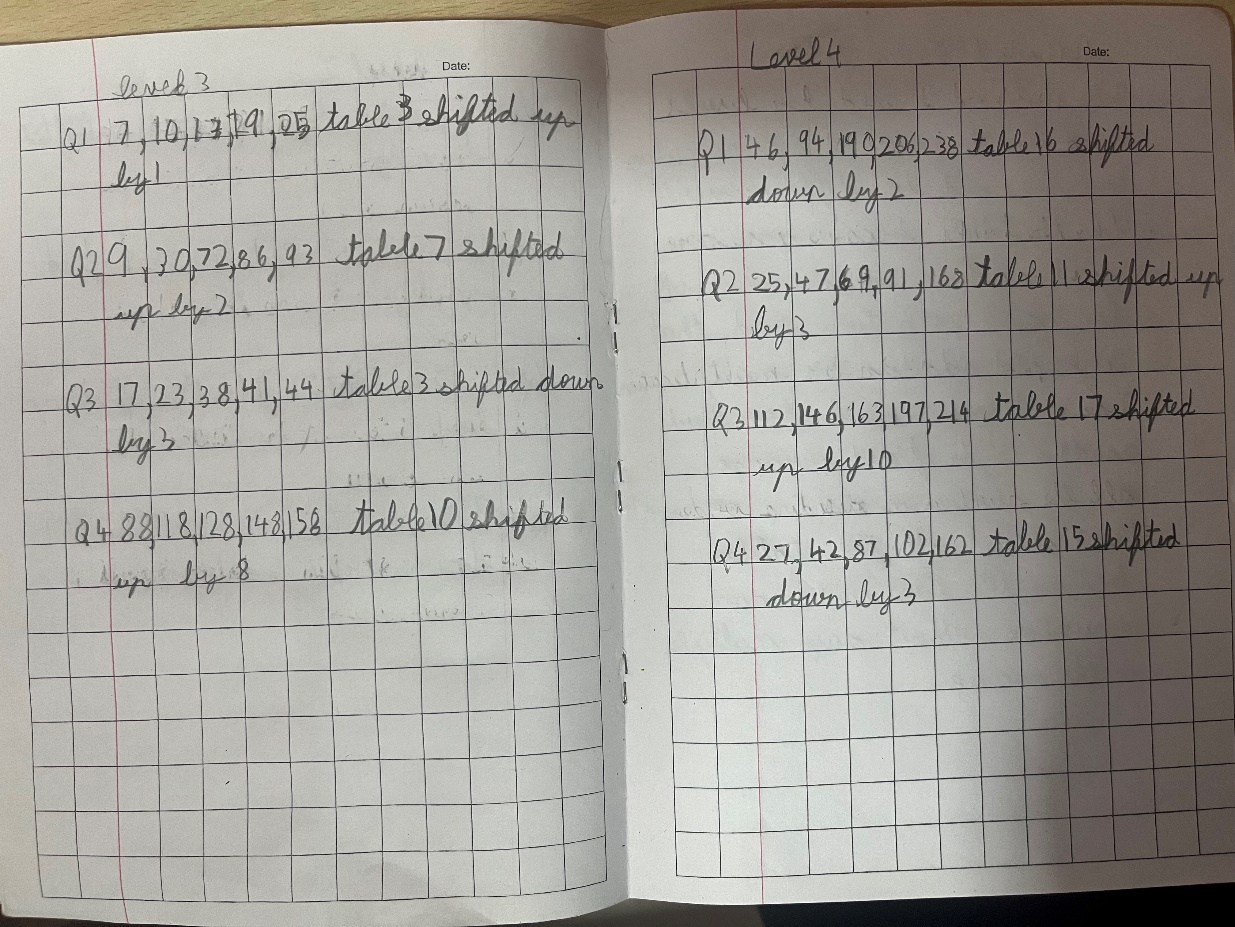 Date:
level 3
Q1 7,10,13,19,25 table 3 shifted up
by 1
Q2 9,30,72,86,93 table 7 shifted
up by 2
Q3 17,23,38,41,44 table 3 shifted down
by 3
Q4 88,118,128,148,158 table 10 shifted
up by 8
Date:
Level 4
Q1 46,94,190,206,238 table 16 shifted
down by 2
Q2 25,47,69,91,168 table 11 shifted up
by 3
Q3 112,146,163,197,214 table 17 shifted
up by 10
Q4 27,42,87,102,162 table 15 shifted
down by 3